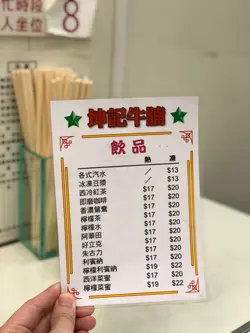 忙時段
人坐位
8
坤記牛腩
飲品
熱 凍
各式汽水 / $13
冰凍豆漿 / $13
西冷紅茶 $17 $20
即磨咖啡 $17 $20
香濃鴛鴦 $17 $20
檸檬茶 $17 $20
檸檬水 $17 $20
阿華田 $17 $20
好立克 $17 $20
朱古力 $17 $20
利賓納 $17 $20
檸檬利賓納 $19 $22
西洋菜蜜 $17 $20
檸檬菜蜜 $19 $22